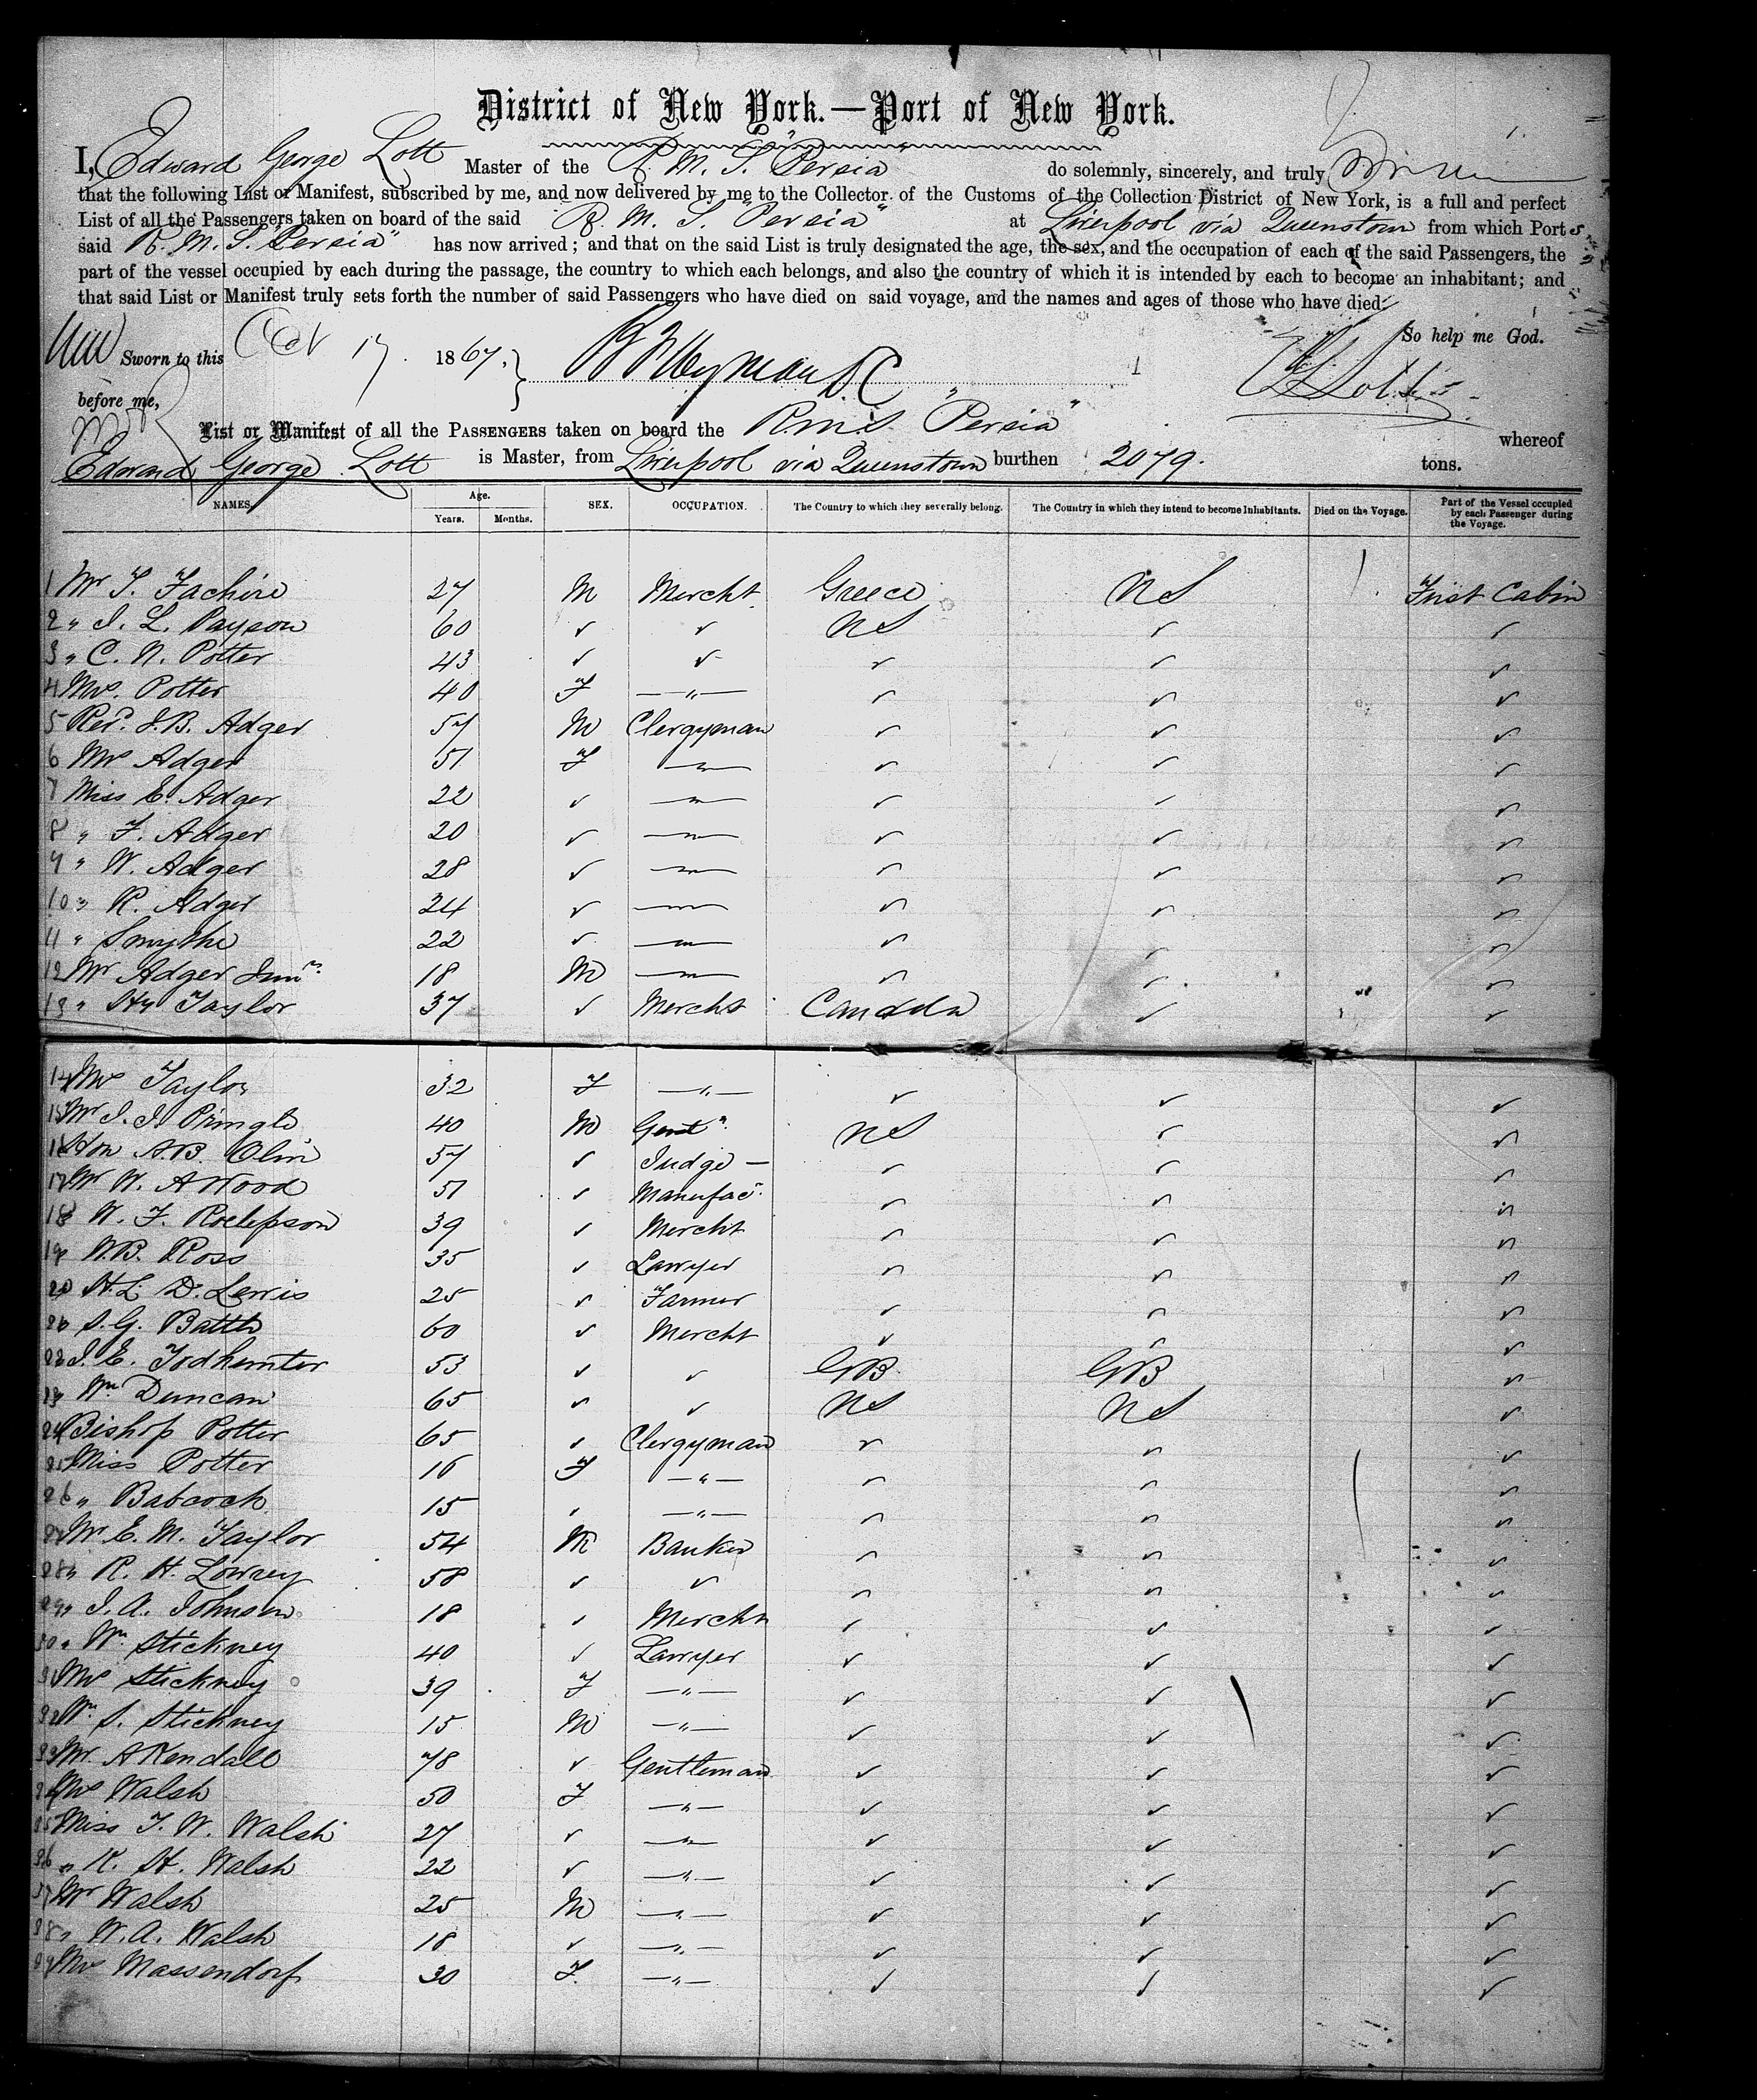 District of New York.—Port of New York.
I, Edward George Lott Master of the R. M. S. "Persia" do solemnly, sincerely, and truly
that the following List or Manifest, subscribed by me, and now delivered by me to the Collector of the Customs of the Collection District of New York, is a full and perfect
List of all the Passengers taken on board of the said R. M. S. "Persia" at Liverpool via Queenstown from which Port s
said R. M. S. "Persia" has now arrived; and that on the said List is truly designated the age, the sex, and the occupation of each of the said Passengers, the
part of the vessel occupied by each during the passage, the country to which each belongs, and also the country of which it is intended by each to become an inhabitant; and
that said List or Manifest truly sets forth the number of said Passengers who have died on said voyage, and the names and ages of those who have died.
So help me God.
Sworn to this Oct 17 1867.
before me,
List or Manifest of all the PASSENGERS taken on board the RMS "Persia" whereof
Edward George Lott is Master, from Liverpool via Queenstown burthen 2079. tons.
NAMES. Age. Years. Months. SEX. OCCUPATION. The Country to which they severally belong. The Country in which they intend to become Inhabitants. Died on the Voyage. Part of the Vessel occupied by each Passenger during the Voyage.
1 Mr T. Fachiri 27 M Mercht Greece US First Cabin
2 " J. L. Payson 60 ✓ ✓ US ✓ ✓
3 " C. N. Potter 43 ✓ ✓ ✓ ✓ ✓
4 Mrs. Potter 40 F —"— ✓ ✓ ✓
5 Revd. J. B. Adger 57 M Clergyman ✓ ✓ ✓
6 Mrs Adger 51 F —"— ✓ ✓ ✓
7 Miss E. Adger 22 ✓ —"— ✓ ✓ ✓
8 " F. Adger 20 ✓ —"— ✓ ✓ ✓
9 " W. Adger 28 ✓ —"— ✓ ✓ ✓
10 " R. Adger 24 ✓ —"— ✓ ✓ ✓
11 " Smythe 22 ✓ —"— ✓ ✓ ✓
12 Mr Adger Junr. 18 M —"— ✓ ✓ ✓
13 " Hy Taylor 37 ✓ Mercht Canada ✓ ✓
14 Mrs Taylor 32 F —"— ✓ ✓ ✓
15 Mr J. J. Pringle 40 M Gent". US ✓ ✓
16 Hon A. B. Olin 57 ✓ Judge — ✓ ✓ ✓
17 Mr W. A Wood 51 ✓ Manufac. ✓ ✓ ✓
18 W. F. 39 ✓ Mercht ✓ ✓ ✓
19 W. B. Ross 35 ✓ Lawyer ✓ ✓ ✓
20 H. L. D. Lewis 25 ✓ Farmer ✓ ✓ ✓
21 S. G. Battle 60 ✓ Mercht ✓ ✓ ✓
22 J. E. Todhunter 53 ✓ ✓ GB GB ✓
23 Wm Duncan 65 ✓ ✓ US US ✓
24 Bishop Potter 65 ✓ Clergyman ✓ ✓ ✓
25 Miss Potter 16 F —"— ✓ ✓ ✓
26 " Babcock 15 ✓ —"— ✓ ✓ ✓
27 Mr E. M. Taylor 54 M Banker ✓ ✓ ✓
28 " R. H. Lowrey 58 ✓ ✓ ✓ ✓ ✓
29 " J. A. Johnson 18 ✓ Mercht ✓ ✓ ✓
30 " Wm. Stickney 40 ✓ Lawyer ✓ ✓ ✓
31 Mrs Stickney 39 F —"— ✓ ✓ ✓
32 Wm. S. Stickney 15 M —"— ✓ ✓ ✓
33 Mr. A Kendall 78 ✓ Gentleman ✓ ✓ ✓
34 Mrs Walsh 50 F —"— ✓ ✓ ✓
35 Miss F. W. Walsh 27 ✓ —"— ✓ ✓ ✓
36 " K. H. Walsh 22 ✓ —"— ✓ ✓ ✓
37 Mr Walsh 25 M —"— ✓ ✓ ✓
38 " W. A. Walsh 18 ✓ —"— ✓ ✓ ✓
39 Mrs Massendorf 30 F. —"— ✓ ✓ ✓